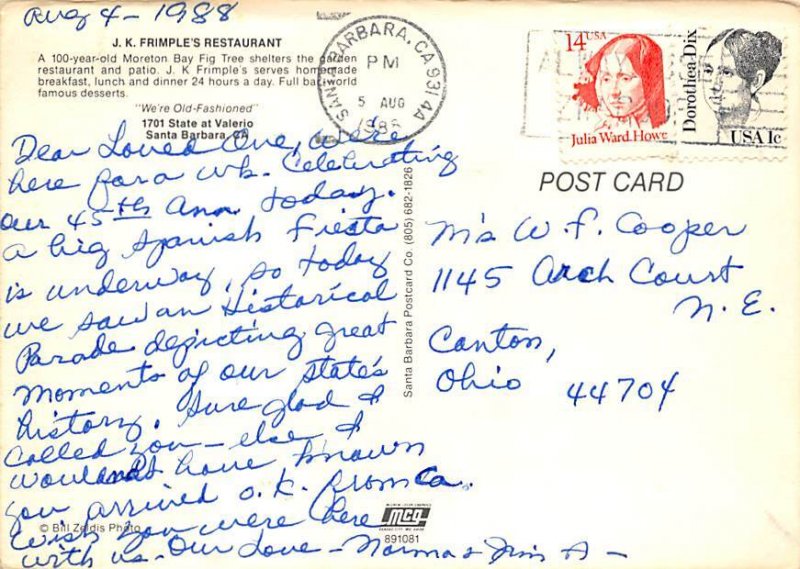 Aug 4 - 1988
J. K. FRIMPLE'S RESTAURANT
A 100-year-old Moreton Bay Fig Tree shelters the garden
restaurant and patio. J. K. Frimple's serves homemade
breakfast, lunch and dinner 24 hours a day. Full bar, world
famous desserts.
"We're Old-Fashioned"
1701 State at Valerio
Santa Barbara, CA
Dear Loved One, We're
here for a wk. Celebrating
our 45th Ann. today.
a big Spanish Fiesta
is underway, so today
we saw an Historical
Parade depicting great
moments of our state's
history. Sure glad I
called you - else I
wouldn't have known
you arrived o.k. from Ca.
Wish you were here
with us. Our Love - Norma & Jim A -
© Bill Zeldis Photo
Santa Barbara Postcard Co. (805) 682-1826
MCG
891081
SANTA BARBARA, CA 931 4A
PM
5 AUG
1988
14 USA
Julia Ward Howe
Dorothea Dix
USA 1c
POST CARD
W. F. Cooper
1145 Arch Court
N. E.
Canton,
Ohio 44704